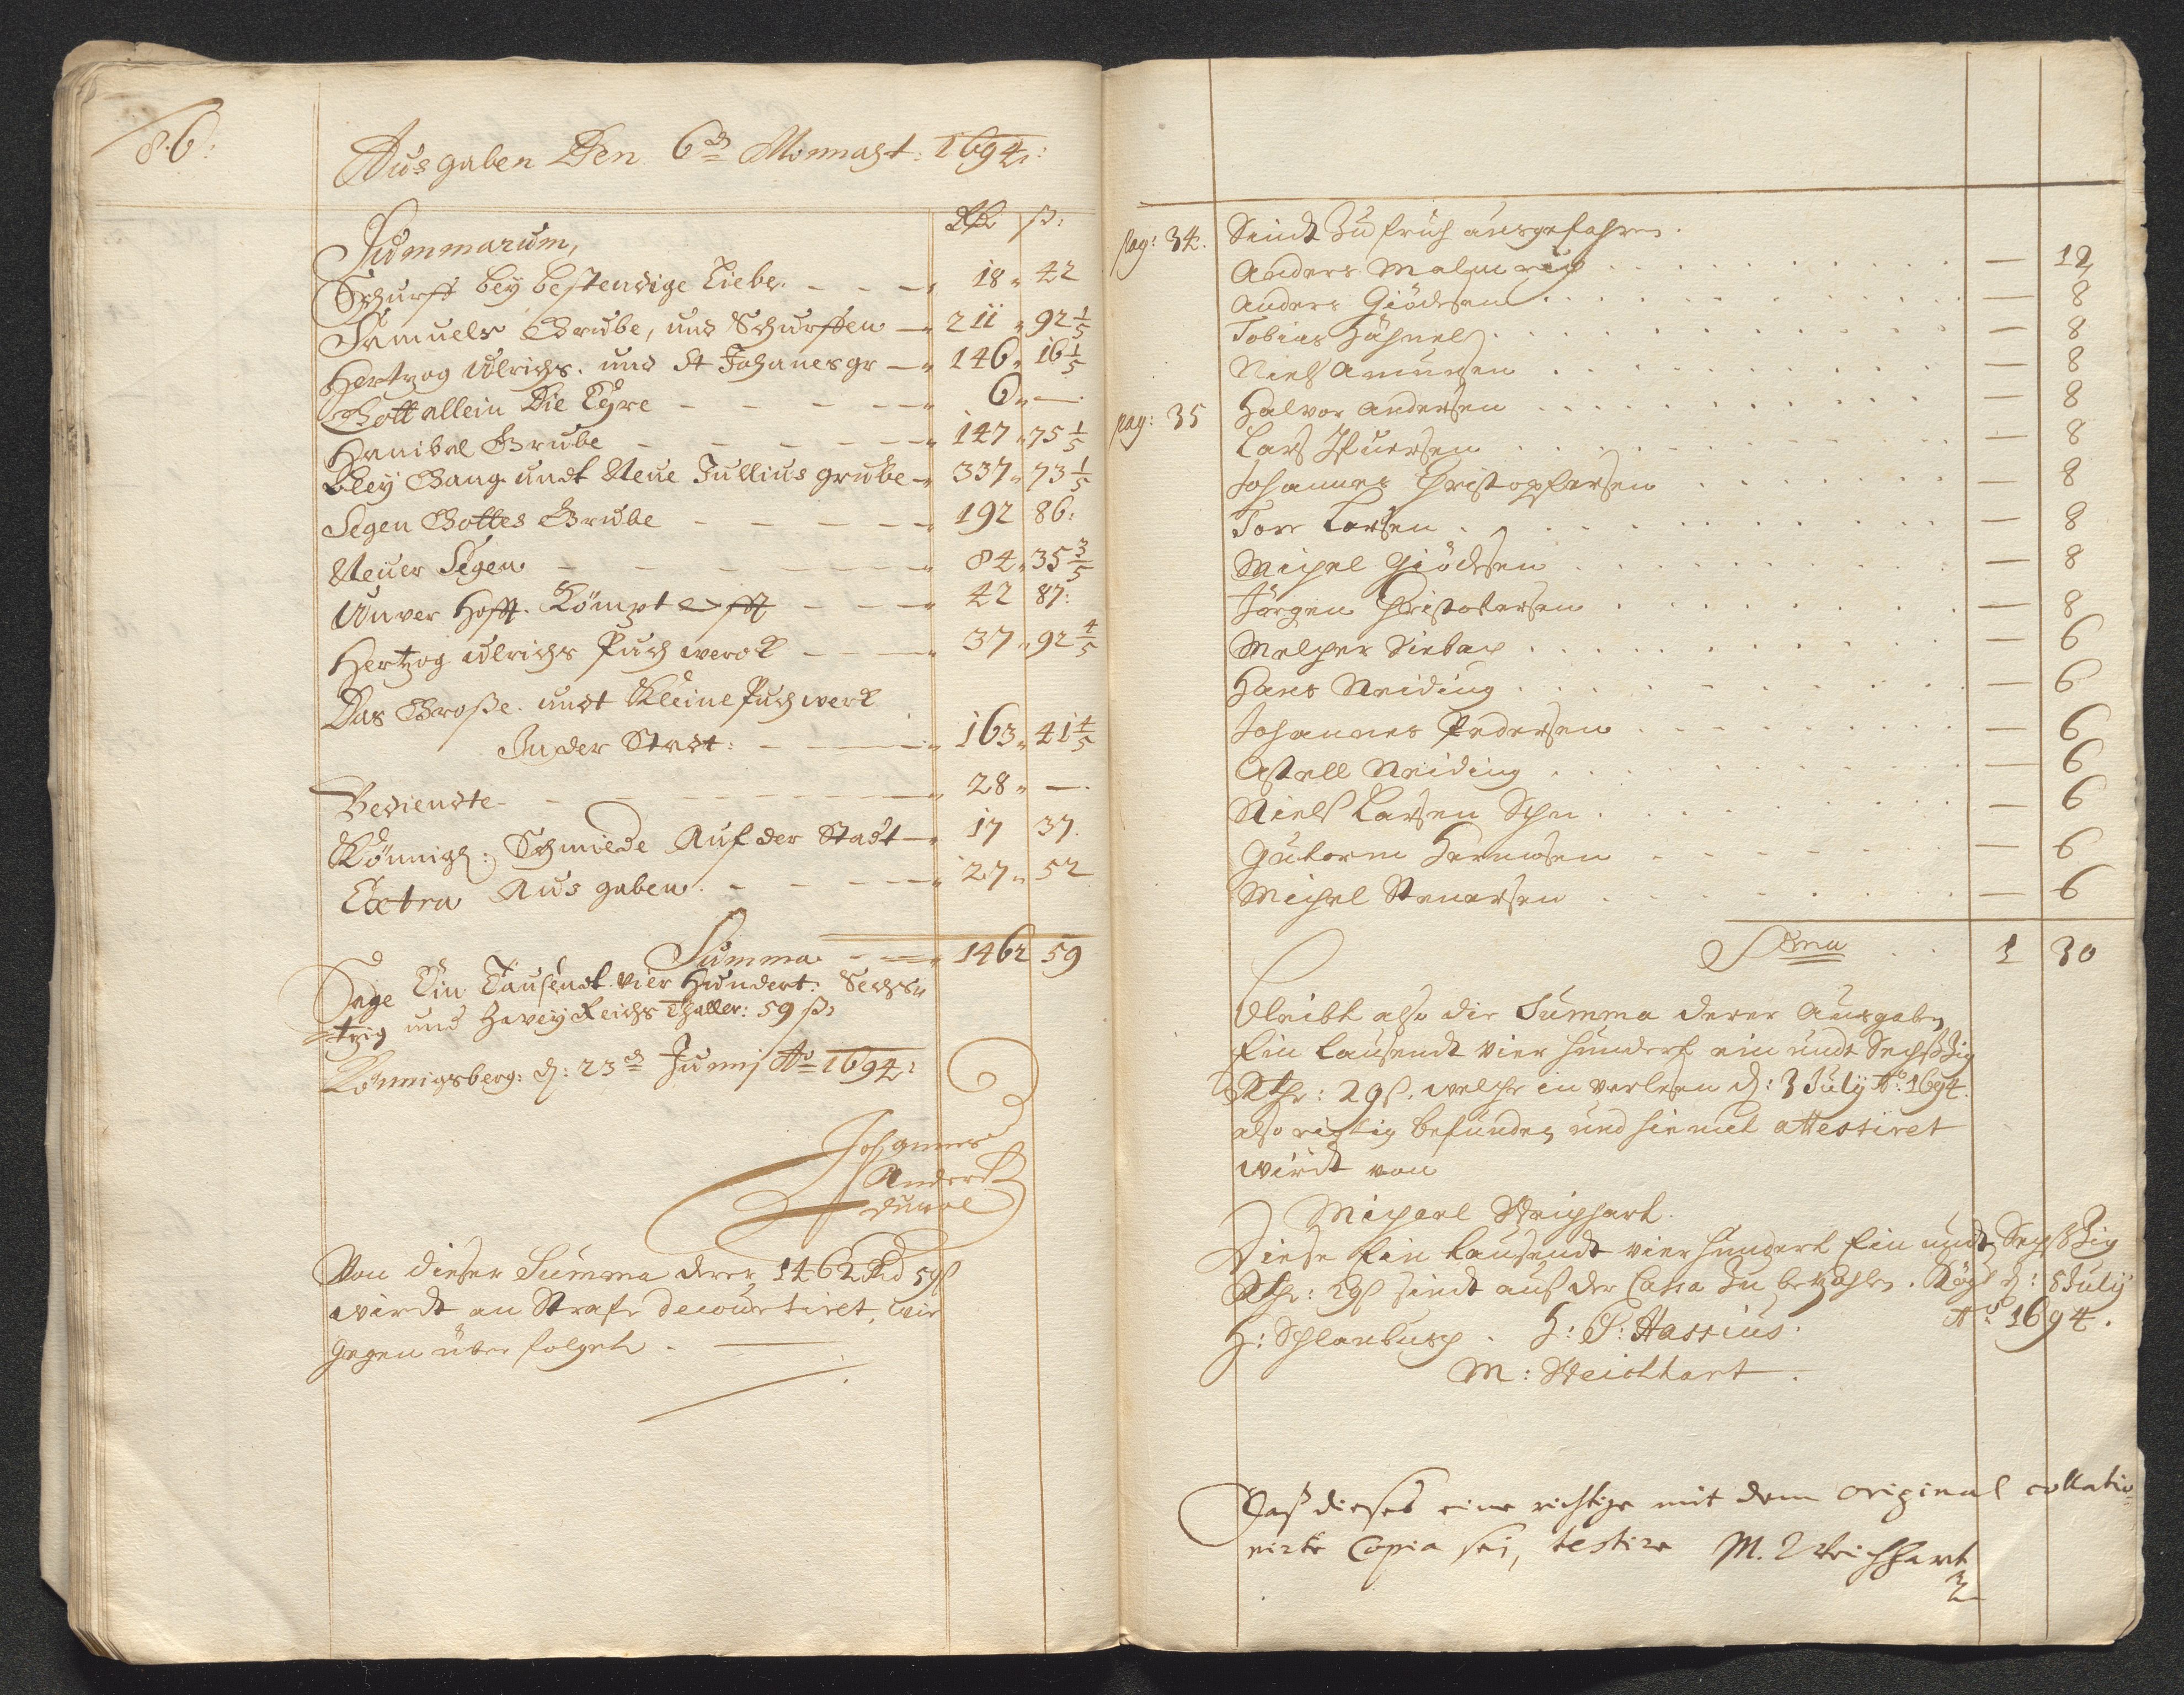 86:
Ausgaben Den 6ͭ Monnaht: 1694:
Rthl ß:
Summarum,
Schurff beÿ bestendige Liebe. - - - 18 " 42
Samuels Grube, und Schurffen - 211 " 92 1/5
Hertzog Ulrichs. und St Johanes gr - 146 " 16 1/5
Gott allein Die Ehre - - - - 6 " -
Hanibal Grube - - - - - 147 " 75 1/5
Bleÿ Gang undt Neue Jullius grube - 337 " 73 1/5
Segen Gottes Grube - - - - - 192 86:
Neuer Segen - - - - - - 84 " 35 3/5
Unver Hofft. Kömpt offt - - - 42 87:
Hertzog ulrichs Puch werck - - - 37 " 92 4/5
Das Große. undt Kleine Puchwerk
In der Stadt: - - - - 163 " 41 4/5
Bediendte - - - - - - - 28 " -
Königl: Schmiede Auf der Stadt - 17 37.
Extra Aus gaben. - - - - 27 " 52
Summa - - 1462 59
Sage Ein Tausendt. Vier Hundert: Sechs"
=tzig und Zweÿ Reichs Thaller: 59 ß:
Königsberg: d: 23 Junnij Ao 1694:
Johannes
Anders
Von dieser Summa derer 1462 Rd 59ß
wirdt an Strafe decourtiret, wie
gegen über folget.
pag: 34. Sindt zu früh ausgefahren.
Anders Malmrig . . . - 12
Anders Giödsen . . . - 8
Tobias Hähnel . . . - 8
Niels Amunsen . . . - 8
pag: 35 Halvor Andersen . . . - 8
Lars Ifuersen . . . - 8
Johannes Christophersen . . . - 8
Tore Larsen . . . - 8
Michel Giödsen . . . - 8
Jörgen Christophersen . . . - 8
Melcher Siebas . . . - 6
Hans Neiding . . . - 6
Johannes Pedersen . . . - 6
Astell Neiding . . . - 6
Niels Larsen Schu . . . - 6
Gutorm Hermosen . . . - 6
Michel Stenersen . . . - 6
Suma . . 1 30
Bleibt also die Summa derer Ausgaben
Ein tausendt vier hundert ein undt Sechßzig
Rthr: 29ß. welche in verlesen d: 3 Julÿ Ao: 1694.
also richtig befunden und hiemit attestiret
wirdt von
Michael Weichhart.
Diese Ein tausendt vier hundert Ein undt Sechßzig
Rthr: 29ß sindt aus der Cassa zu bezahlen. Kögsb d: 8 Julÿ
H: Schlanbusch. H: P: Hassius. Ao: 1694.
M: Weichhart.
Daß dieses eine richtige mit dem original collatio=
nirte Copia sei, testire M. Weichhart